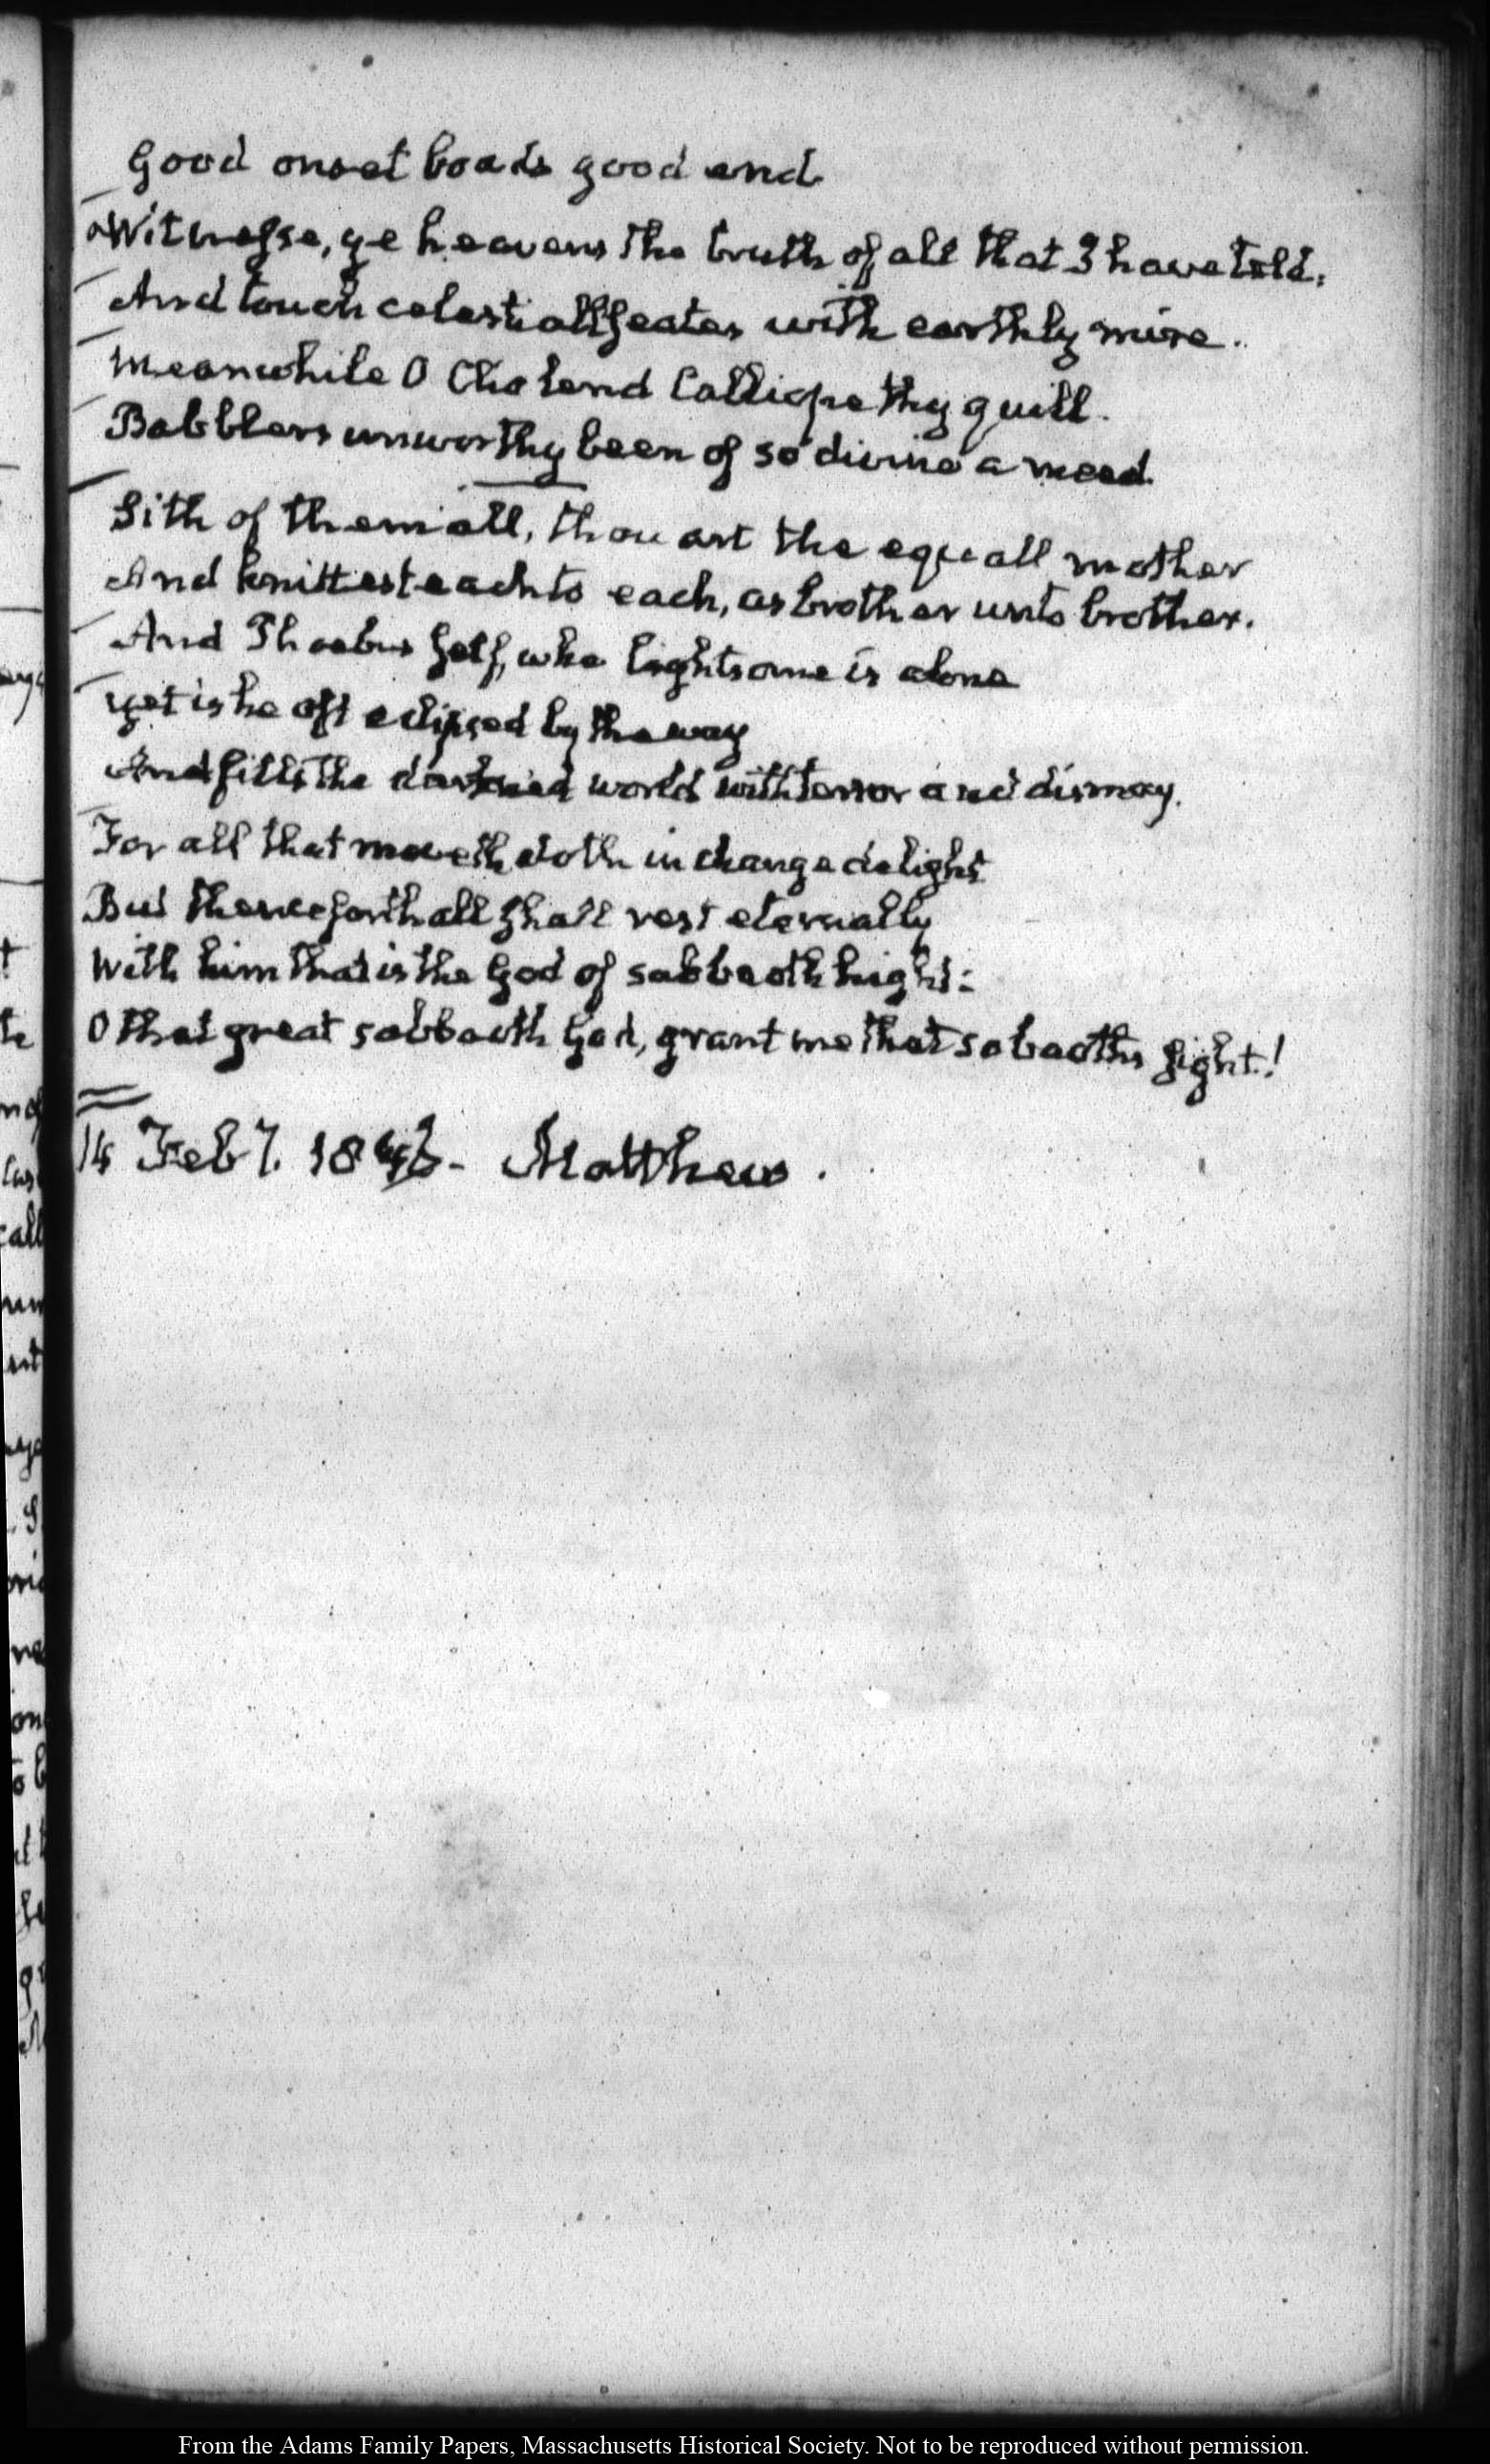 Good onset boads good end
Witnesse, ye heavens the truth of all that I have told;
And touch celestiall seates with earthly mire.
Meanwhile O Clio lend Calliope thy quill.
Babblers unworthy been of so divine a meed.
Sith of them all, thou art the equall mother
And knittest each to each, as brother unto brother.
And Phoebus self, who lightsome is alone
yet is he oft eclipsed by the way
And fills the darkned world with terror and dismay.
For all that moveth doth in change delight
But thenceforth all shall rest eternally
With him that is the God of sabbaoth hight:
O that great sabbaoth God, grant me that sabaoths sight!
14 Feby. Matthew.
ays
t
te
call
um
9
ne
From the Adams Family Papers, Massachusetts Historical Society. Not to be reproduced without permission.